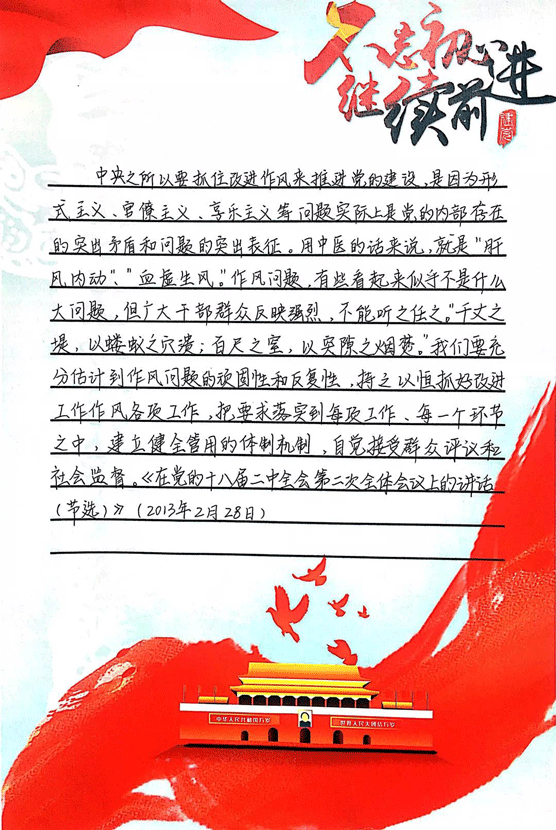 不忘初心
继续前进
建党
中央之所以要抓住改进作风来推进党的建设,是因为形
式主义、官僚主义、享乐主义等问题实际上是党的内部存在
的突出矛盾和问题的突出表征。用中医的话来说,就是“肝
风内动”、“血虚生风。”作风问题,有些看起来似乎不是什么
大问题,但广大干部群众反映强烈,不能听之任之。“千丈之
堤,以蝼蚁之穴溃;百尺之室,以突隙之烟焚。”我们要充
分估计到作风问题的顽固性和反复性,持之以恒抓好改进
工作作风各项工作,把要求落实到每项工作、每一个环节
之中,建立健全管用的体制机制,自觉接受群众评议和
社会监督。《在党的十八届二中全会第二次全体会议上的讲话
(节选)》(2013年2月28日)
中华人民共和国万岁
世界人民大团结万岁